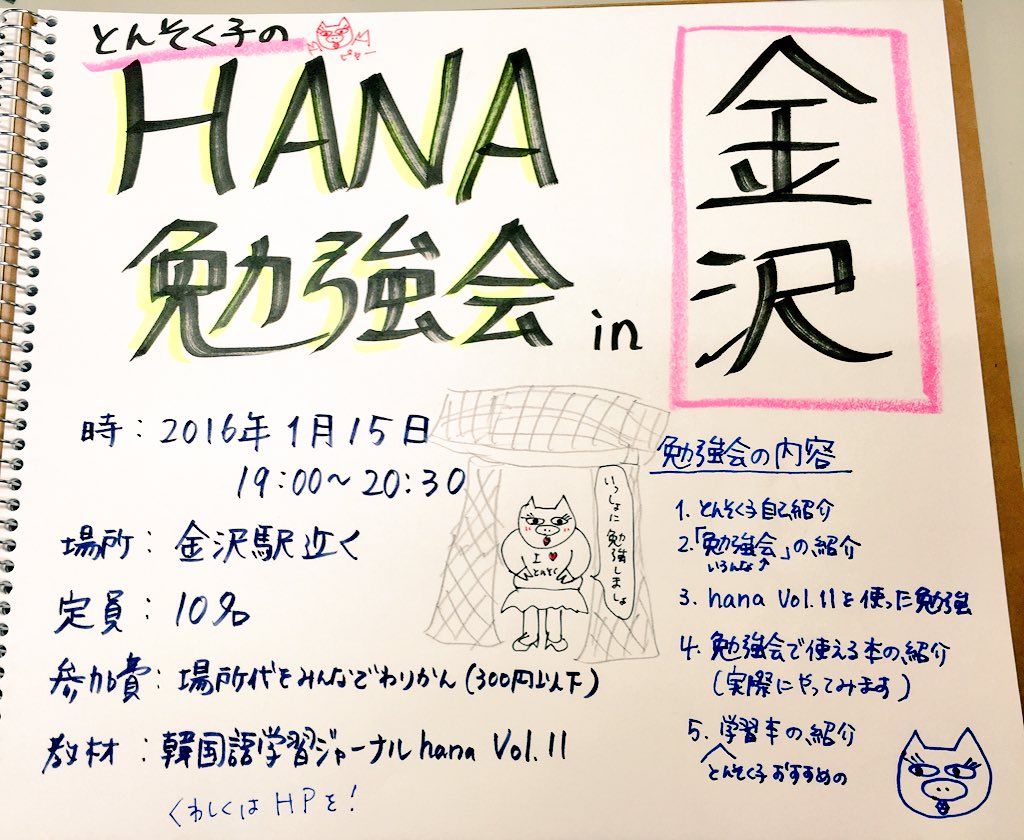 とんそく子の
ピギー
HANA
勉強会 in
金沢
時：2016年1月15日
19:00〜20:30
場所：金沢駅近く
定員：10名
参加費：場所代をみんなでわりかん(300円以下)
教材：韓国語学習ジャーナルhana Vol.11
くわしくはHPを！
いっしょに勉強しましょ
I ♥
とんそく
勉強会の内容
1. とんそく子自己紹介
2.「勉強会」の紹介
いろんな↗
3. hana Vol.11を使った勉強
4. 勉強会で使える本の紹介
(実際にやってみます)
5. 学習本の紹介
とんそく子おすすめの